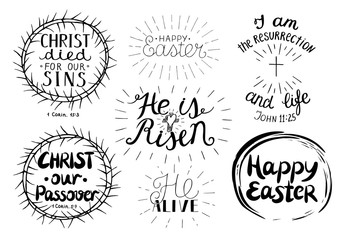 CHRIST
died
FOR OUR
SINS
1 Corin. 15:3
HAPPY
Easter
I am
the RESURRECTION
and life
JOHN 11:25
He is
Risen
CHRIST
our
Passover
He
ALIVE
Happy
EASTER